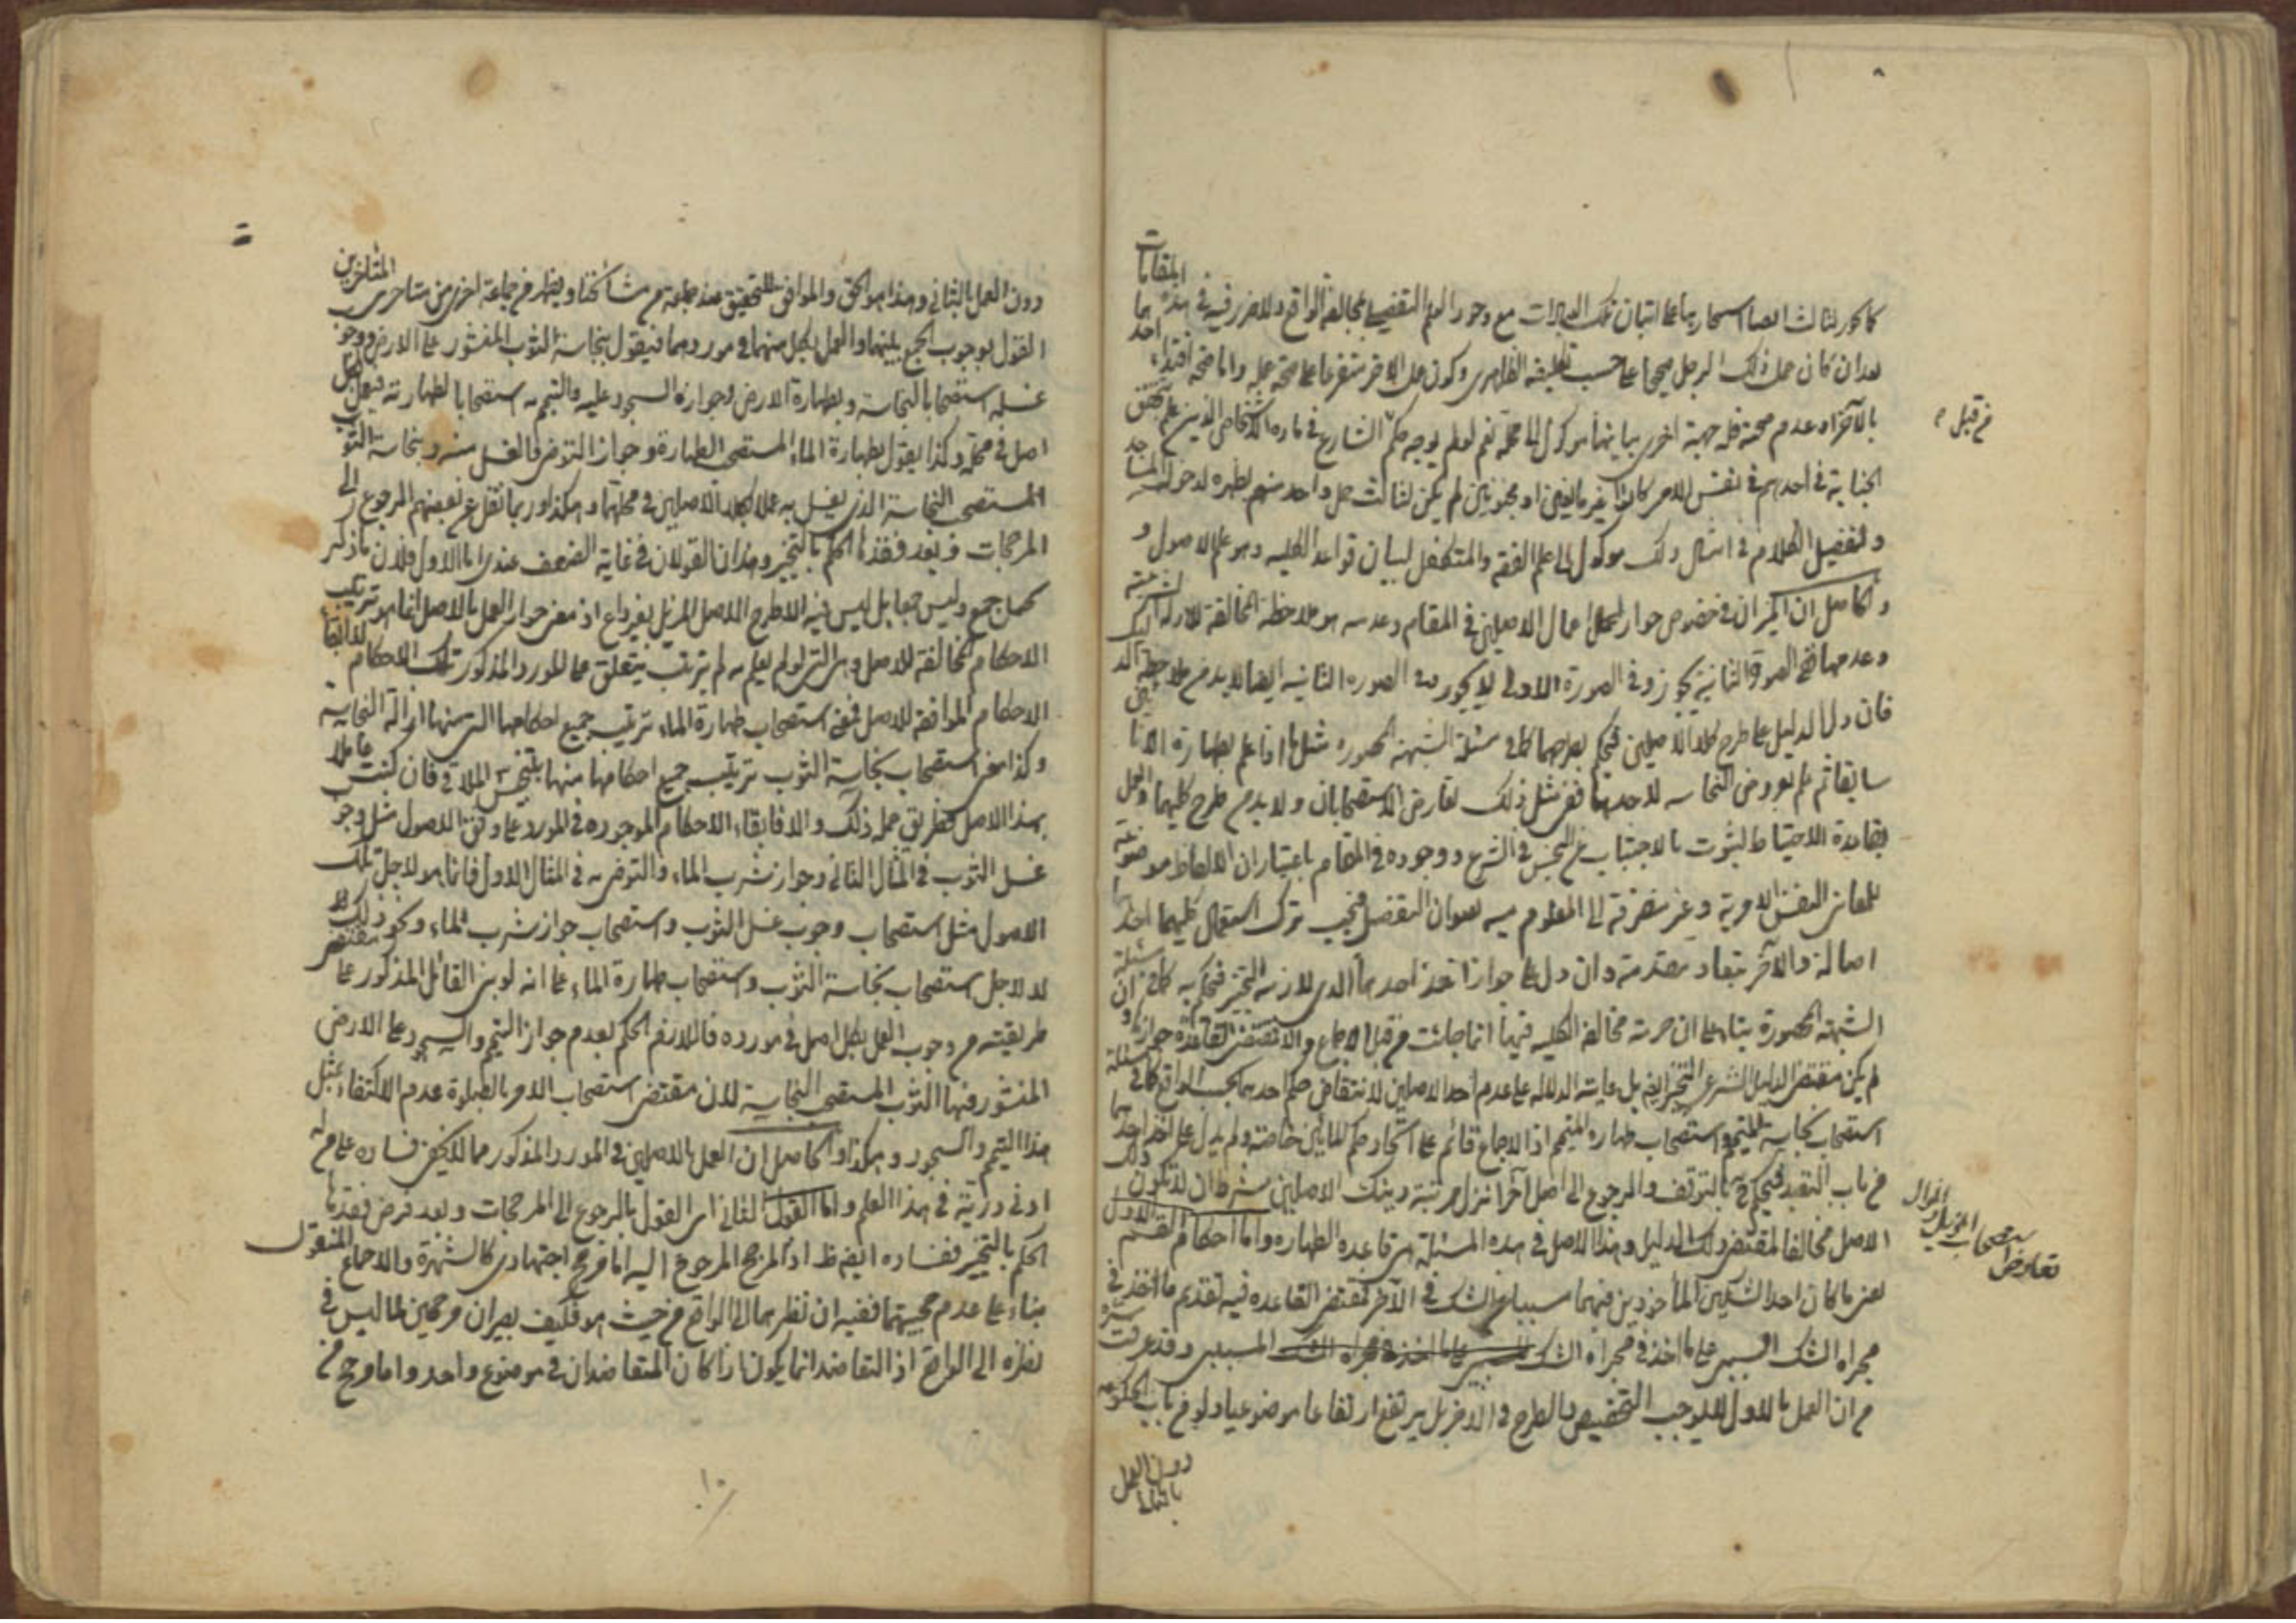 ايضا استيجارها على اتيان تلك العبادات مع وجود العلم التفصيلى بمخالفة الواقع ولا ضرر فيه فى هذه المقامات
بعد ان كان عمل ذلك الرجل صحيحا على حسب تكليفه الظاهرى وكون عمل الاخر متفرعا على صحة عمله واما صحة اقتداء احدهما
بالآخر او عدم صحته فله جهة اخرى بيانها موكول الى محله نعم لو لم يوجه حكم الشارع فى
الجنابة فى احدهم فى نفس الامر او مجنونين لم يكن لثالث حمل واحد منهم لدخول المساجد
وتفصيل الكلام فى امثال ذلك موكول الى علم الفقه والمتكفل لبيان قواعد الكليه وهو علم الاصول و
الحاصل ان الميزان فى خصوص جواز اعمال الاصلين فى المقام وعدمه هو ملاحظة المخالفة
وعدمها ففى الصورة الثانية يجوز وفى الصورة الاولى لا يجوز وفى الصوره الثانيه ايضا لا بد من ملاحظة
فان دل الدليل على طرح كلا الاصلين فيحكم بطرحهما كما فى مسئلة الشبهة المحصوره مثل ما اذا علم بطهارة الانائين
سابقا ثم علم بعروض النجاسه لاحدهما ففى مثل ذلك تعارض الاستصحابان ولا بد من طرح كليهما والعمل
بقاعدة الاحتياط لثبوت الاجتناب عن النجس فى الشرع ووجوده فى المقام باعتبار ان الالفاظ موضوعة
للمعانى النفس الامرية وغير منصرفة الى المعلوم منه بعنوان التفصيل فيجب ترك استعمال كليهما احدهما
اصالة والآخر مقدمة وان دل على جواز اخذ احدهما الذى لازمه التخيير فيحكم به كما فى مسئلة
الشبهة المحصورة بناء على ان حرمة مخالفة الكليه فيها انما جائت من قبل الاجماع والا مقتضى القاعدة جوازها وان
لم يكن مقتضى الدليل الشرعى التخيير ايضا بل غايته الدلالة على عدم اخذ الاصلين لانتقاض حكم احدهما بحسب الواقع كما فى مسئلة
استصحاب نجاسة المتمم واستصحاب طهارة المتمم اذ الاجماع قائم على اتحاد حكم المائين خاصة ولم يدل على اخذ احدهما
من باب التعبد فيحكم بالتوقف والرجوع الى اصل آخر انزل مرتبة من ذينك الاصلين بشرط ان لا يكون ذلك
الاصل مخالفا لمقتضى ذلك الدليل وهذا الاصل فى هذه المسئلة هى قاعدة الطهاره واما احكام القسم الاول
يعنى ما كان احد الشكين المأخوذين فيهما سببا عن الشك فى الآخر فمقتضى القاعده فيه تقديم ما اخذ فى
مجراه الشك السببى على ما اخذ فى مجراه الشك المسببى وقد عرفت سره
من ان العمل بالاول لا يوجب التخصيص والطرح فى الاخر بل يرتفع ارتفاعا موضوعيا ولو من باب الحكومة
دون العمل
بالثانى
من قبل
تعارض استصحاب المزيل والمزال
دون العمل بالثانى وهذا هو الحق والموافق للتحقيق عند جماعة من مشائخنا ويظهر من جماعة اخرى من متاخرى المتاخرين
القول بوجوب الجمع بينهما والعمل بكل منهما فى موردهما فيقول بنجاسة الثوب المنشور على الارض ووجوب
غسله استصحابا للنجاسة وبطهارة الارض وجواز السجود عليه والتيمم به استصحابا لطهارته فيعمل بكل
اصل فى محله وكذا يقول بطهارة الماء المستصحب الطهارة وجواز التوضى والغسل منه وبنجاسة الثوب
المستصحب النجاسة الذى يغسل به عملا بكلا الاصلين فى محلهما وهكذا وربما نقل عن بعضهم الرجوع الى
المرجحات وبعد فقدها الحكم بالتخيير وهذان القولان فى غاية الضعف عندى اما الاول فلان ما ذكر
جمع وليس جمعا بل ليس فيه الا طرح الاصل المزيل بغير داع اذ معنى جواز العمل بالاصل انما هو ترتيب
الاحكام المخالفة للاصل وهى التى لو لم يعلم به لم يترتب يتعلق على المورد المذكور تلك الاحكام لا ابقاء
الاحكام الموافقة للاصل فمعنى استصحاب طهارة الماء ترتيب جميع احكامها التى منها ازالة النجاسة
وكذا معنى استصحاب نجاسة الثوب ترتيب جميع احكامها منها تنجيس الملاقى فان كنت عاملا
بهذا الاصل فطريق عمله ذلك والا فابقاء الاحكام الموجوده فى المورد على وفق الاصول مثل وجوب
غسل الثوب فى المثال الثانى وجواز شرب الماء والتوضى به فى المثال الاول فانما هو لاجل تلك
الاصول مثل استصحاب وجوب غسل الثوب واستصحاب جواز شرب الماء ونحو ذلك
لا لاجل استصحاب نجاسة الثوب واستصحاب طهارة الماء على انه لو بنى القائل المذكور على مقتضى
طريقته من وجوب العمل بكل اصل فى مورده فاللازم الحكم بعدم جواز التيمم والسجود على الارض
المنشور فيها الثوب المستصحب النجاسة لان مقتضى استصحاب الامر بالصلوة عدم الاكتفاء بمثل
هذا التيمم والسجود وهكذا والحاصل ان العمل بالاصلين فى المورد المذكور مما لا يخفى فساده على من له
ادنى درية فى هذا العلم واما القول الثانى اى القول بالرجوع الى المرجحات وبعد فرض فقدها
الحكم بالتخيير ففساده ايضا ظ اذ المرجح المرجوع اليه اما مرجح اجتهادى كالشهرة والاجماع المنقول
بناء على عدم حجيتهما ففيه ان نظرهما الى الواقع من حيث هو فكيف يصيران مرجحين لما ليس فى
نظره الى الواقع اذ التعاضد انما يكون اذا كان المتعاضدان فى موضوع واحد واما مرجح من
١٠